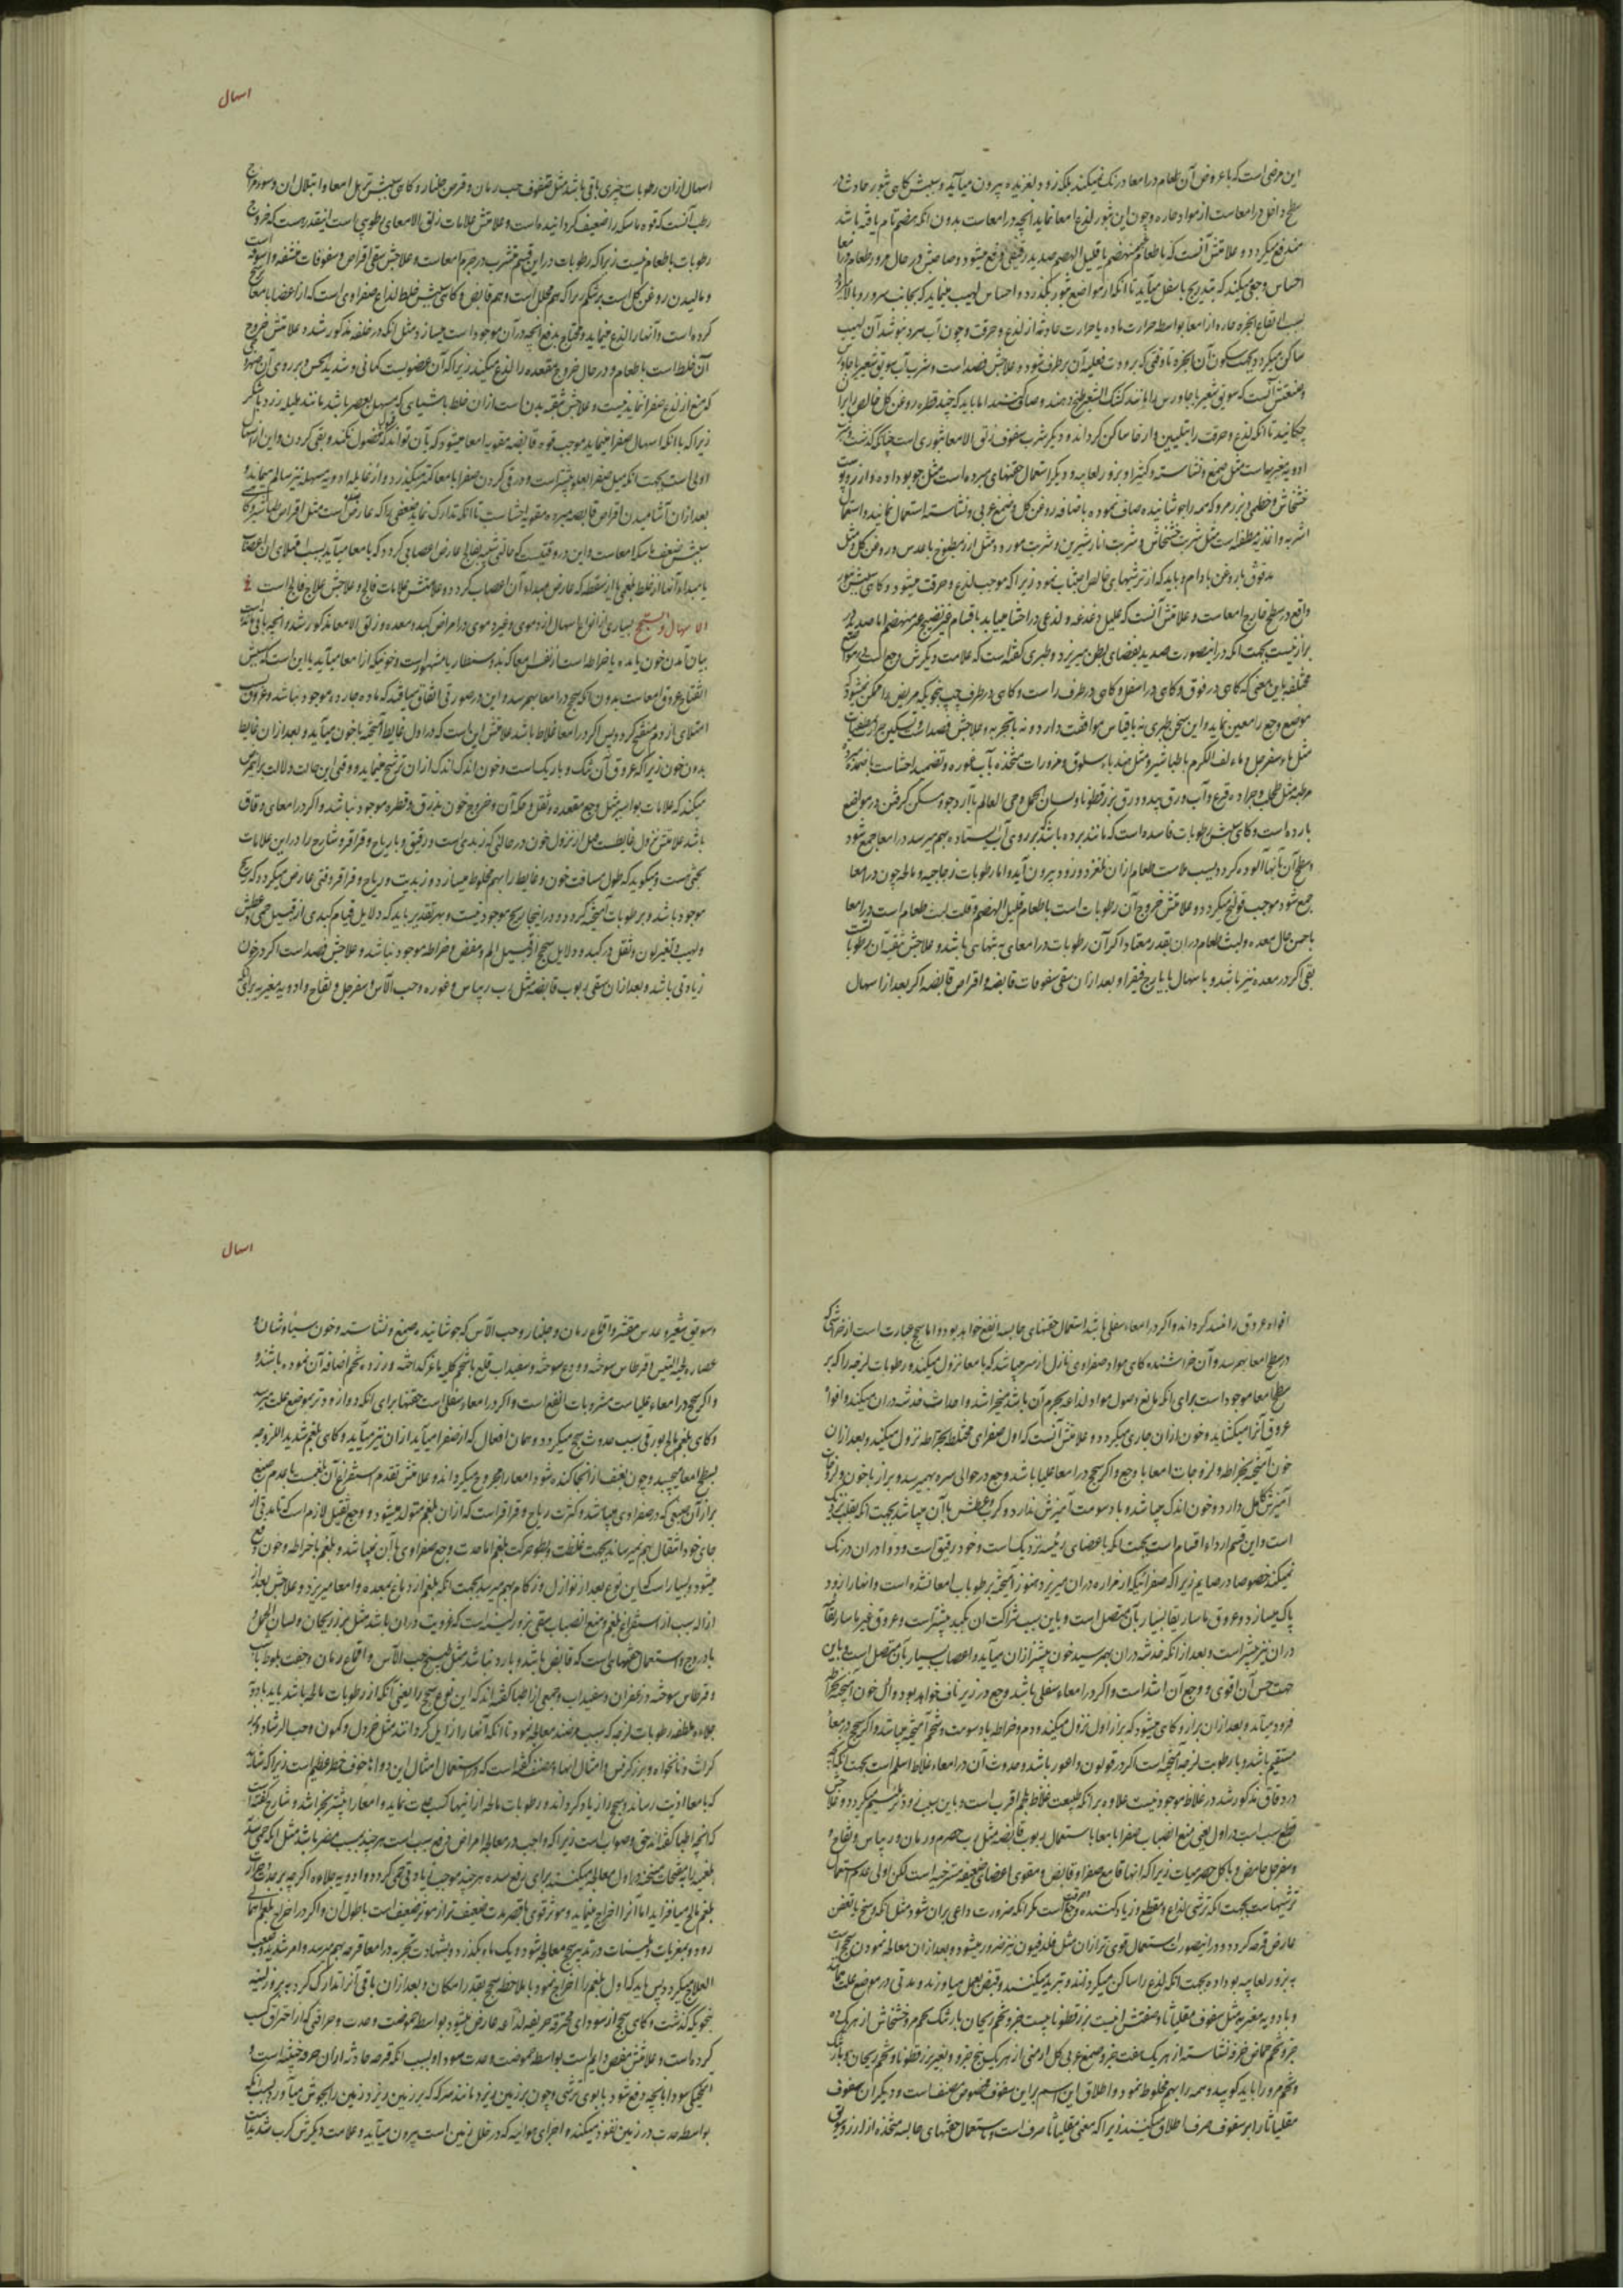 این مرضی است که با عروض آن طعام در امعا درنگ نمیکند بلکه زود و لغزنده بیرون میآید و سببش گاهی بثور حادث در
سطح داخل امعاست از مواد حاره و چون این بثور لذع امعا نماید آنچه در امعاست بدون آنکه هضم تام یافته باشد
مندفع میگردد و علامتش آنست که با طعام غیر منهضم یا قلیل الهضم صدید رقیقی دفع میشود و صاحبش در حال مرور طعام در امعا
احساس وجعی میکند که بتدریج باسفل میآید تا آنکه از مواضع بثور بگذرد و احساس لهیب مینماید که بجانب سر و رو بالا میرود
بسبب ارتفاع ابخره حاره از امعا بواسطه حرارت ماده یا حرارت حادثه از لذع و حرقت و چون آب سرد بنوشد آن لهیب
ساکن میگردد بجهت سکون آن ابخره تا وقتی که برودت فعلیه آن برطرف شود و علاجش فصد است و شرب آب سویق شعیر با جاورس
و صنعتش آنست که سویق شعیر با جاورس را مانند کشک الشعیر طبخ دهند و صاف کنند اما باید که چند قطره روغن گل خالص را بر آن
چکانند تا آنکه لذع و حرقت را بتلیین و ارخا ساکن گرداند و دیگر شرب سفوف زلق الامعا بثوری است چنانکه گذشت و شرب
ادویه مغریه است مثل صمغ و نشاسته و کتیرا و بزور لعابیه و دیگر استعمال حقنهای مبرده است مثل جو بو داده و ارز و پوست
خشخاش و خطمی و بزر مرو که همه را جوشانیده صاف نموده باضافه روغن گل و صمغ عربی و نشاسته استعمال نمایند و استعمال
اشربه و اغذیه مطفئه است مثل شربت خشخاش و شربت انار شیرین و شربت مورد و مثل ارز مطبوخ با عدس و روغن گل و مثل
مدقوق با روغن بادام و باید که از ترشیهای خالص اجتناب نمود زیرا که موجب لذع و حرقت میشود و گاهی سببش بثور
واقع در سطح خارج امعاست و علامتش آنست که علیل دغدغه و لذعی در احشا مییابد با قیام غیر نضیج غیر منهضم اما صدید در
براز نیست بجهت آنکه در اینصورت صدید بفضای بطن میریزد و طبری گفته است که علامت دیگرش وجع است در مواضع
مختلفه باین معنی که گاهی در فوق و گاهی در اسفل و گاهی در طرف راست و گاهی در طرف چپ بنحویکه مریض را ممکن نمیشود که
موضع وجع را معین نماید و این سخن طبری نه با قیاس موافقت دارد و نه با تجربه و علاجش فصد است و تسکین حرارت بمطفیات
مثل ماء سفرجل و ماء لف الکرم با طباشیر و مثل هندباء مسلوق و مزورات متخذه بآب غوره و تضمید احشاست باضمده مبرده
بارده است و گاهی سببش رطوبات فاسده است که مانند برده باشد که بر روی آب ایستاده بهم میرسد در امعا جمع شود
و سطح آن بآنها آلوده گردد بسبب ملاست طعام از آن بلغزد و زود بیرون آید و اما رطوبات زجاجیه و مالحه چون در امعا
جمع شود موجب قولنج میگردد و علامتش خروج آن رطوبات است با طعام قلیل الهضم و قلت لبث طعام است در امعا
با حسن حال معده و لبث طعام در آن بقدر معتاد اگر آن رطوبات در امعای به تنهائی باشد و علاجش تنقیه آن رطوبات
بقی اگر در معده نیز باشد و باسهال بایارج فیقرا و بعد از آن سقی سفوفات قابضه و اقراص قابضه اگر بعد از اسهال
اسهال
اسهال از آن رطوبات چیزی باقی باشد مثل سفوف حب رمان و قرص جلنار و گاهی سببش ترهل امعا و ابتلال آن و سوء مزاج
رطب آنست که قوه ماسکه را ضعیف گردانیده است و علامتش علامات زلق الامعای رطوبی است اینقدر هست که خروج
رطوبات با طعام نیست زیرا که رطوبات در این قسم متشرب در جرم امعاست و علاجش سقی اقراص و سفوفات منشفه و اسوقه است
و مالیدن روغن گل است بر شکم زیرا که هم محلل است و هم قابض و گاهی سببش خلط لذاع صفراوی است که از اعضا بامعا
کرده است و آنها را لذع مینماید و محتاج بدفع آنچه در آن موجود است میسازد مثل آنکه در خلفه مذکور شد و علامتش خروج
آن خلط است با طعام و در حال خروج مقعده را لذع میکند زیرا که آن عضویست کم انی و شدید الحس
که منع از لذع صفرا نماید نیست و علاجش تنقیه بدن است از آن خلط باشیائی که مسهل بعصر باشد مانند هلیله زرد با شکر
زیرا که با آنکه اسهال صفرا مینماید موجب قوه قابضه مقویه امعا میشود که بآن تواند که قبول فضول نکند و بقی کردن و این از اسهال
اولی است بجهت آنکه میل صفرا بعلو بیشتر است و در قی کردن صفرا بامعا کمتر میگذرد و از غایله ادویه مسهله نیز سالم میماند و
بعد از آن آشامیدن اقراص قابضه مبرده مقویه احشاست تا آنکه تدارک نماید ضعفی را که عارض شده است مثل اقراص طباشیر و گاهی
سببش ضعف ماسکه امعاست و این در وقتیست که حالتی شبیه بفالج عارض اعصابی گردد که بامعا میآید بسبب امتلای آن اعصاب
یا مبداء آنها از خلط بلغمی یا از سقطه که عارض مبداء آن اعصاب گردد و علامتش علامات فالج و علاجش علاج فالج است
الاسهال و السحج بسیاری از انواع اسهال از دموی و غیر دموی در امراض کبد و معده و زلق الامعا مذکور شد و آنچه باقی ماند
بیان آمدن خون یا مده یا خراطه است از نفس امعا که بدوسنطاریا مشهور است و خونیکه از امعا میآید یا این است که سببش
انفتاح عروق امعاست بدون آنکه سحج در امعا بهم رسد و این در صورتی اتفاق میافتد که ماده حاده موجود نباشد و عروق بسبب
امتلای از دم منفتح گردد پس اگر در امعا غلاظ باشد علامتش این است که در اول غایط آمیخته با خون میآید و بعد از آن غایط
بدون خون زیرا که عروق آن تنگ و باریک است و خون اندک اندک از آن ترشح مینماید و وقتی این حالت دلالت بر این مرض
میکند که علامات بواسیر مثل وجع مقعده و ثقل و حکه آن و خروج خون بذرق و قطره موجود نباشد و اگر در امعای دقاق
باشد علامتش نزول غایط است قبل از نزول خون در حالتی که زبدی است و رقیق و با ریاح و قراقر و شارح را در این علامات
بحثی هست و میگوید که طول مسافت خون و غایط را بهم مخلوط میسازد و زبدیت و ریاح و قراقر وقتی عارض میگردد که ریح
موجود باشد و بر طوبات آمیخته گردد و در اینجا ریح موجود نیست و بهر تقدیر باید که دلایل قیام کبدی از قبیل حمی و عطش
و لهیب و تغیر لون و ثقل در کبد و دلایل سحج از قبیل الم و مغص و خراطه موجود نباشد و علاجش فصد است اگر در خون
زیادتی باشد و بعد از آن سقی ربوب قابضه مثل رب ریباس و غوره و حب الآس و سفرجل و تفاح و ادویه مغریه برای آنکه
افواه عروق را منسد گرداند و اگر در امعاء سفلی باشد استعمال حقنهای حابسه انفع خواهد بود و اما سحج عبارت است از خراشی که
در سطح امعا بهم رسد و آن خراشنده گاهی مواد صفراوی نازل از سر میباشد که بامعا نزول میکند و رطوبات لزجه را که بر
سطح امعا موجود است برای آنکه مانع وصول مواد لذاعه بجرم آن باشد میخراشد و احداث خدشه در آن میکند و افواه
عروق آنرا میگشاید و خون از آن جاری میگردد و علامتش آنست که اول صفرای مختلط بخراطه نزول میکند و بعد از آن
خون آمیخته بخراطه و لزوجات امعا با وجع و اگر سحج در امعا علیا باشد وجع در حوالی سره بهم رسد و براز با خون و لزوجات
آمیزش کامل دارد و خون اندک میباشد و با دسومت آمیزش ندارد و کرب و عطش با آن میباشد بجهت آنکه بقلب نزدیک
است و این قسم ارداء اقسام است بجهت آنکه باعضای رئیسه نزدیک است و خود رقیق است و دوا در آن درنگ
نمیکند خصوصا در صایم زیرا که صفرائیکه از مراره در آن میریزد هنوز آمیخته برطوبات امعا نشده است و آنها را زود
پاک میسازد و عروق ماساریقا بسیار بآن متصل است و باین سبب شراکت آن بکبد بیشتر است و عروق غیر ماساریقا
در آن نیز بیشتر است و بعد از آنکه خدشه در آن بهم رسید خون بیشتر از آن میآید و اعصاب بسیار بآن متصل است و باین
جهت حس آن اقوی و وجع آن اشد است و اگر در امعاء سفلی باشد وجع در زیر ناف خواهد بود و اول خون آمیخته بخراطه
فرود میآید و بعد از آن براز و گاهی میشود که براز اول نزول میکند و دم و خراطه با دسومت و شحم آمیخته میباشد و اگر سحج در معاء
مستقیم باشد و با رطوبت لزجه آمیخته است اگر در قولون و اعور باشد و حدوث آن در امعاء غلاظ اسلم است بجهت آنکه آنچه
در دقاق مذکور شد در غلاظ موجود نیست علاوه بر آنکه طبیعت غلاظ بلحم اقرب است و باین سبب زودتر ملتئم میگردد و علاجش
قطع سبب است در اول یعنی منع انصباب صفرا بامعا باستعمال ربوب قابضه مثل رب حصرم و رمان و ریباس و تفاح و
و سفرجل حامض و بالجمله حصرمیات زیرا که آنها قامع صفرا و قابض و مقوی اعضای ضعیفه مسترخیه است لکن اولی عدم استعمال
ترشیها است بجهت آنکه ترشی لذاع و مقطع و زیاد کننده وجع است مگر آنکه ضرورت داعی بر آن شود مثل آنکه وسخ یا تعفن
عارض قرحه گردد و در اینصورت استعمال قوی تر از آن مثل فلدفیون نیز ضرور میشود و بعد از آن معالجه نمودن سحج است
به بزور لعابیه بو داده بجهت آنکه لذع را ساکن میگرداند و تبرید میکند و قبض بعمل میآورند و مدتی در موضع علت میماند
و بادویه مغریه مثل سفوف مقلیاثا و صفتش اینست بزر قطونا بیست جزو تخم ریحان بارتنگ تخم مرو خشخاش از هر یک ده
جزو تخم حماض خرفه نشاسته از هر یک هفت جزو صمغ عربی گل ارمنی از هر یک پنج جزو و بغیر بزر قطونا و تخم ریحان و بارتنگ
و تخم مرو را باید کوبید و همه را بهم مخلوط نمود و اطلاق این اسم بر این سفوف مخصوص مصنف است و دیگران سفوف
مقلیاثا را بر سفوف حرف اطلاق میکنند زیرا که معنی مقلیاثا حرف است و استعمال حقنهای حابسه متخذه از ارز و سویق
اسهال
و سویق شعیر و عدس مقشر و اقماع رمان و جلنار و حب الآس که جوشانیده و صمغ و نشاسته و خون سیاوشان و
عصاره لحیة التیس و قرطاس سوخته و ودع سوخته و سفیداب قلع با شحم کلیه بز گداخته و زرده تخم اضافه آن نموده باشند و
و اگر سحج در امعاء علیا است مشروبات انفع است و اگر در امعاء سفلی است حقنها برای آنکه دوا زودتر بموضع علت میرسد
و گاهی بلغم مالح بورقی سبب حدوث سحج میگردد و همان افعال که از صفرا میآید از آن نیز میآید و گاهی بلغم شدید اللزوجه
بسطح امعا میچسبد و چون بعنف از آنجا کنده شود امعا را مجروح میگرداند و علامتش تقدم استفراغ آن بلغمست با عدم صبغ
براز آن صبغی که در صفراوی میباشد و کثرت ریاح و قراقر است که از آن بلغم متولد میشود و وجع ثقیل لازم است تا مدتی از
جای خود انتقال بهم نمیرساند بجهت غلظت و بطوء حرکت بلغم اما حدت وجع صفراوی با آن نمیباشد و بلغم با خراطه و خون دفع
میشود و بسیار است که این نوع بعد از نوازل و زکام بهم میرسد بجهت آنکه بلغم از دماغ بمعده و امعا میریزد و علاجش بعد از
ازاله سبب از استفراغ بلغم و منع انصباب سقی بزور لینه است که غرویت در آن باشد مثل بزر ریحان و لسان الحمل و
بادروج و استعمال حقنهای است که قابض باشد و بارد نباشد مثل طبیخ حب الآس و اقماع رمان و جفت بلوط با
و قرطاس سوخته و زعفران و سفیداب و جمعی از اطبا گفته‌اند که این نوع سحج را یعنی آنکه از رطوبات مالحه باشد باید بادویه
جلاءه و ملطفه رطوبات لزجه که سبب مرضند معالجه نمود تا آنکه آنها را زایل گردانند مثل خردل و کمون و حب الرشاد و بزر
کراث و نانخواه و بزر کرفس و امثال آنها و مصنف گفته است که در استعمال امثال این دواها خوف خطر عظیم است زیرا که شاید
که بامعا اذیت رساند و سحج را زیاد گرداند و رطوبات مالحه از آنها کسب حدت نماید و امعا را بیشتر بخراشد و شارح گفته است
که آنچه اطبا گفته‌اند حق و صواب است زیرا که واجب در معالجه امراض دفع سبب است هر چند بسبب مضر باشد مثل آنکه حمی سدی
بلغمیه را بمفتحات مسخنه در اول معالجه میکنند برای رفع سده هر چند موجب زیادتی حمی گردد و ادویه جلاءه اگر چه بر حدت
بلغم مالح میافزاید اما آنرا اخراج مینماید و مؤثر قوی با قصر مدت ضعیف تر از مؤثر ضعیف است با طول آن و اگر در اخراج بلغم امعا
رود و بمغریات و ملینات در تدبیر سحج معالجه شود و یک ماه بگذرد و بشهادت تجربه در امعا قرحه بهم میرسد و امر شدید و صعب
العلاج میگردد پس باید که اول بلغم را اخراج نمود با ملاحظه سحج بقدر امکان و بعد از آن باقی آنرا تدارک کرد به بزور لینه
بنحویکه گذشت و گاهی سحج از سودای محترقه حریفه لذاعه عارض میشود بواسطه حموضت و حدت و حراقتی که از احتراق کسب
کرده است و علامتش مغص دایم است بواسطه حموضت و حدت سودا و بسبب آنکه قرحه حادثه از آن حرقه خبیثه است و
آمیختگی سودا بآنچه دفع شود با بوی ترشی و چون بر زمین ریزد مانند سرکه که بر زمین ریزد زمین را بجوش میآورد بسبب آنکه
بواسطه حدت در زمین نفوذ میکند و اجزای هوائیه که در خلل زمین است بیرون میآید و علامت دیگرش کرب شدید است